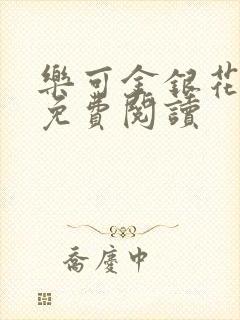 樂可金銀花
免費閱讀
喬慶中